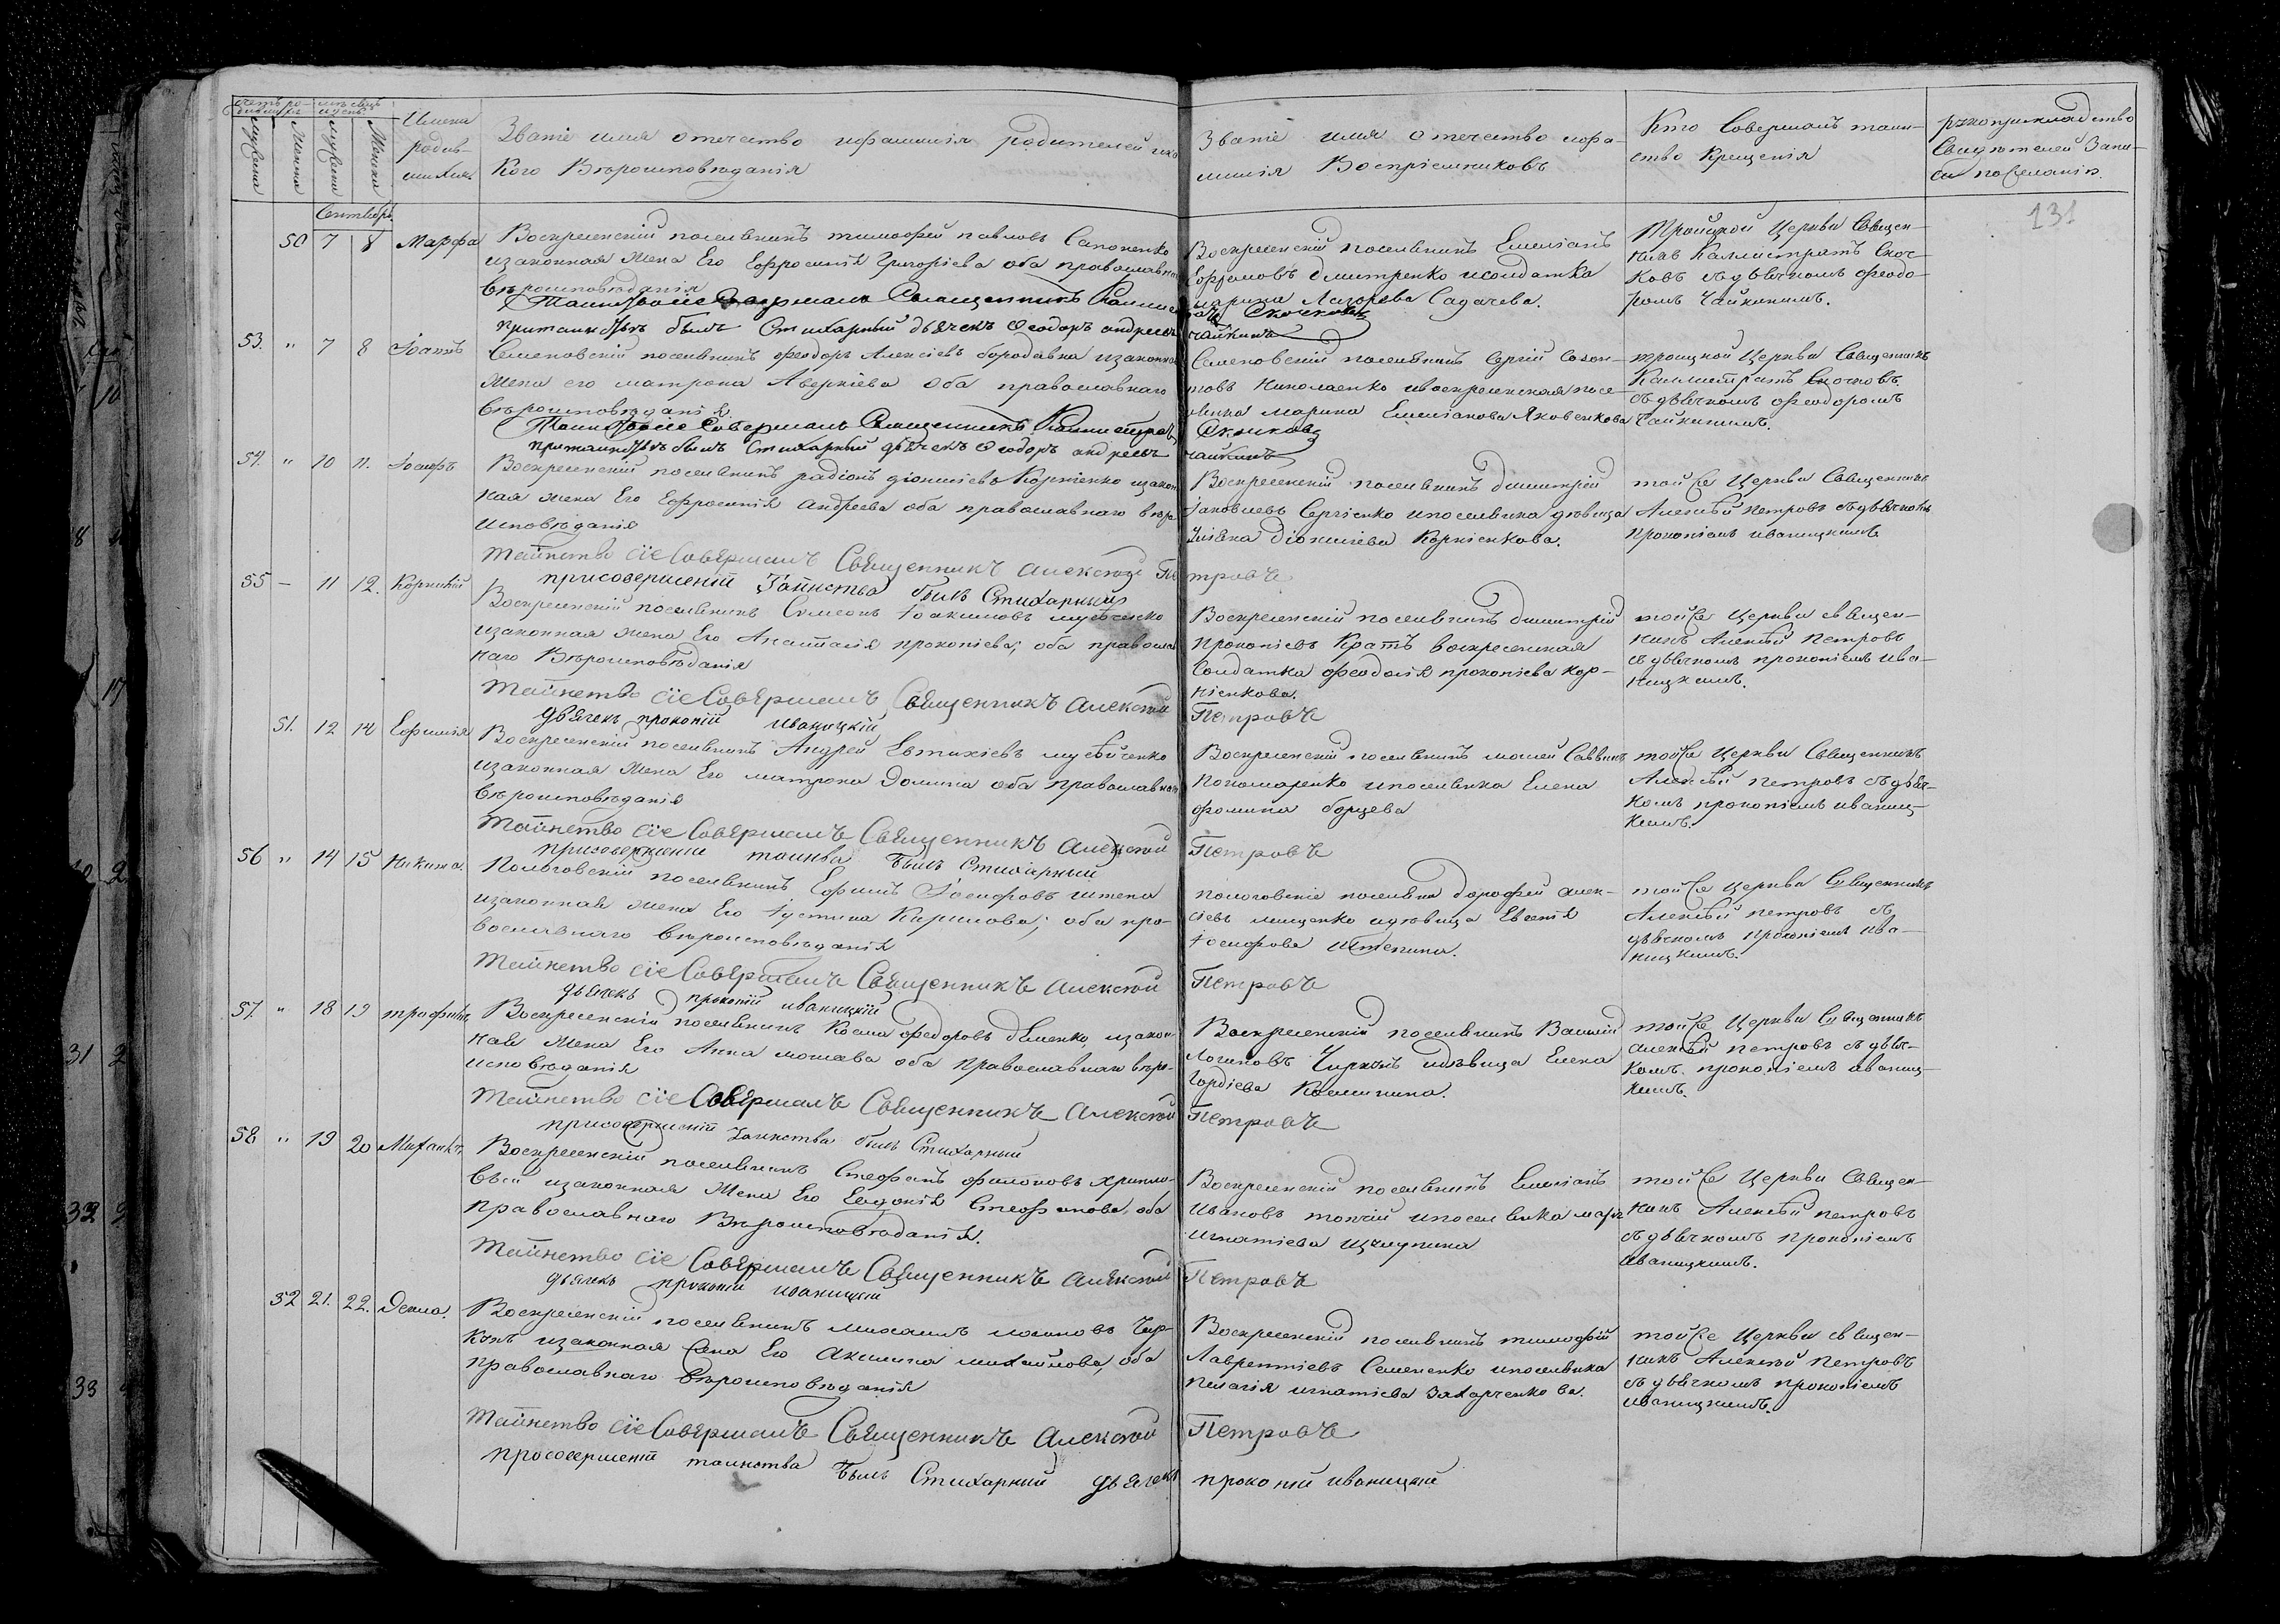 Счетъ ро-
дившихъ
мѣсяцъ
и день
Имена
родив-
шихся
Званіе имя отечество ифамилія родителей ика
Кого Вѣроисповѣданія
Званіе имя отечество ифа-
милія Воспріемниковъ
Кто Совершалъ таин-
ство Крещенія
рукоприкладство
Свидѣтелей Запи-
си пожеланію.
131
Сентябрь
50 7 8 Марфа
Воскресенскій поселянинъ тимофей павловъ Сапоненко
изаконная жена Его Ефросинія Григоріева оба православнаго
Вѣроисповѣданія
Таинство сіе Совершалъ Священникъ Каллистратъ
Скочковъ
притаинствѣ былъ Стихарный дьячекъ Феодоръ андреевъ
чайкинъ
Воскресенскій поселянинъ Емеліанъ
Ефремовъ дмитренко исолдатка
марина Лазорева Садачева.
Троицкой Церкви Священ-
никъ Каллистратъ Скоч-
ковъ съ дьячкомъ феодо-
ромъ Чайкинымъ.
53. " 7 8 Іоаннъ
Семеновскій поселянинъ феодоръ Алексіевъ бородавка изаконная
Жена его матрона Аверкіева оба православнаго
Вѣроисповѣданія
Таинство сіе Совершалъ Священникъ Каллистратъ
Скочковъ
притаинствѣ былъ Стихарный дьячекъ Феодоръ андреевъ
чайкинъ
Семеновскій поселянинъ Сергій Созон-
товъ Николаенко ивоскресенская посе-
лянка Марина Емеліанова Яковенкова
троицкой Церкви Священникъ
Каллистратъ Скочковъ
съ дьячкомъ феодоромъ
Чайкинымъ.
54. " 10 11. Іосифъ
Воскресенскій поселянинъ радіонъ діонисіевъ Корніенко изакон
ная жена Его Ефросинія андреева оба православнаго вѣро
исповѣданія
Таинство сіе Совершалъ Священникъ Алексѣй Пе
тровъ
присовершеніи Таинства былъ Стихарный
Воскресенскій поселянинъ димитрій
іаковлевъ Сергіенко ипоселянка дѣвица
Улiяна Діонисіева Корніенкова.
той же Церкви Священникъ
Алексѣй Петровъ съ дьячкомъ
Прокопіемъ иваницкимъ
55 - 11 12. Корнилій
Воскресенскій поселянинъ Симеонъ Іоакимовъ
изаконная жена Его Анастасія прокопіева; оба православ
наго Вѣроисповѣданія
Таинство сіе Совершалъ Священникъ Алексѣй
Петровъ
дьячекъ прокопій иваницкій
Воскресенскій поселянинъ димитрій
прокопіевъ Кратъ воскресенская
Солдатка феодосія прокопіева кор-
ніенкова.
той же Церкви священ-
никъ Алексѣй Петровъ
съ дьячкомъ прокопіемъ ива-
ницкимъ.
51. 12 14 Ефимія
Воскресенскій поселянинъ Андрей Евтихіевъ
изаконная Жена Его матрона Домина оба православнаго
Вѣроисповѣданія
Таинство сіе Совершалъ Священникъ Алексѣй
Петровъ
присовершеніи таинства былъ Стихарный
Воскресенскій поселянинъ моисей Саввинъ
Пономаренко ипоселянка Елена
фомина борцева
той же Церкви Священникъ
Алексѣй Петровъ съ дьяч-
комъ прокопіемъ иваниц-
кимъ.
56 " 14 15 Никита.
Пологовскій поселянинъ Ефимъ Іосифовъ штепа
изаконная жена Его Іустина Кирилова; оба пра-
вославнаго Вѣроисповѣданія
Таинство сіе Совершалъ Священникъ Алексѣй
Петровъ
дьячекъ прокопій иваницкій
пологовскіе поселяне дорофей алек-
сіевъ мищенко идѣвица Евгенія
Іосифова Штепина.
той же Церкви Священникъ
Алексѣй петровъ съ
дьячкомъ прокопіемъ ива-
ницкимъ.
57. " 18 19 трофимъ
Воскресенскій поселянинъ Косма федоровъ дѣменко, изакон
ная жена Его Анна моисеева оба Православнаго вѣро-
исповѣданія
Таинство сіе Совершалъ Священникъ Алексѣй
Петровъ
присовершеніи таинства былъ Стихарный
Воскресенскій поселянинъ Василій
Логиновъ Чирконъ идѣвица Елена
Гордіева Космина.
той же Церкви Священникъ
алексѣй петровъ съ дьяч-
комъ прокопіемъ иваниц-
кимъ.
58 " 19 20 Михаилъ
Воскресенскій поселянинъ Стефанъ филоновъ хрипли-
вый изаконная Жена Его Евдокія Стефанова, оба
православнаго Вѣроисповѣданія.
Таинство сіе Совершалъ Священникъ Алексѣй
Петровъ
дьячекъ прокопій иваницкій
Воскресенскій поселянинъ Емеліанъ
Ивановъ ипоселянка
игнатіева
той же Церкви Священ-
никъ Алексѣй петровъ
съ дьячкомъ прокопіемъ
иваницкимъ.
52 21. 22. Текла.
Воскресенскій поселянинъ михаилъ логиновъ Чир-
конъ изаконная жена Его Акилина михайлова, оба
православнаго Вѣроисповѣданія
Таинство сіе Совершалъ Священникъ Алексѣй
Петровъ
присовершеніи таинства былъ Стихарный дьячекъ
прокопій иваницкій
Воскресенскій поселянинъ тимофій
Лаврентіевъ Семененко ипоселянка
пелагія игнатіева Захарченкова.
той же Церкви священ-
никъ Алексѣй Петровъ
съ дьячкомъ прокопіемъ
иваницкимъ.